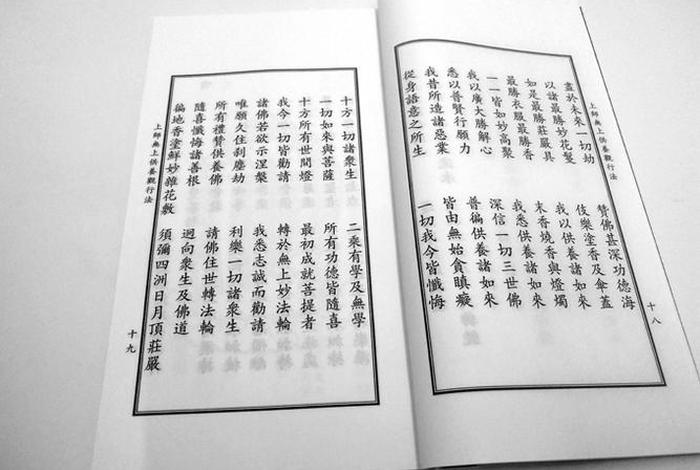 上師無上供養觀行法
十八
盡於未來一切劫 讚佛甚深功德海
以諸最勝妙花鬘 伎樂塗香及傘蓋
如是最勝莊嚴具 我以供養諸如來
最勝衣服最勝香 末香燒香與燈燭
一一皆如妙高聚 我悉供養諸如來
我以廣大勝解心 深信一切三世佛
悉以普賢行願力 普徧供養諸如來
我昔所造諸惡業 皆由無始貪瞋癡
從身語意之所生 一切我今皆懺悔
十方一切諸眾生 二乘有學及無學
一切如來與菩薩 所有功德皆隨喜
十方所有世間燈 最初成就菩提者
我今一切皆勸請 轉於無上妙法輪
諸佛若欲示涅槃 我悉志誠而勸請
唯願久住刹塵劫 利樂一切諸眾生
所有禮讚供養佛 請佛住世轉法輪
隨喜懺悔諸善根 迴向眾生及佛道
徧地香塗鮮妙雜花敷 須彌四洲日月頂莊嚴
上師無上供養觀行法
十九